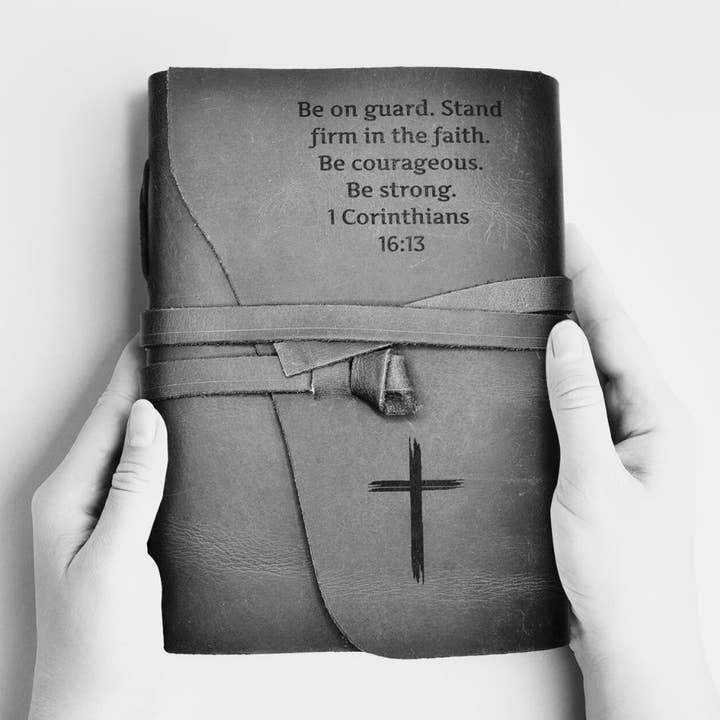 Be on guard. Stand
firm in the faith.
Be courageous.
Be strong.
1 Corinthians
16:13